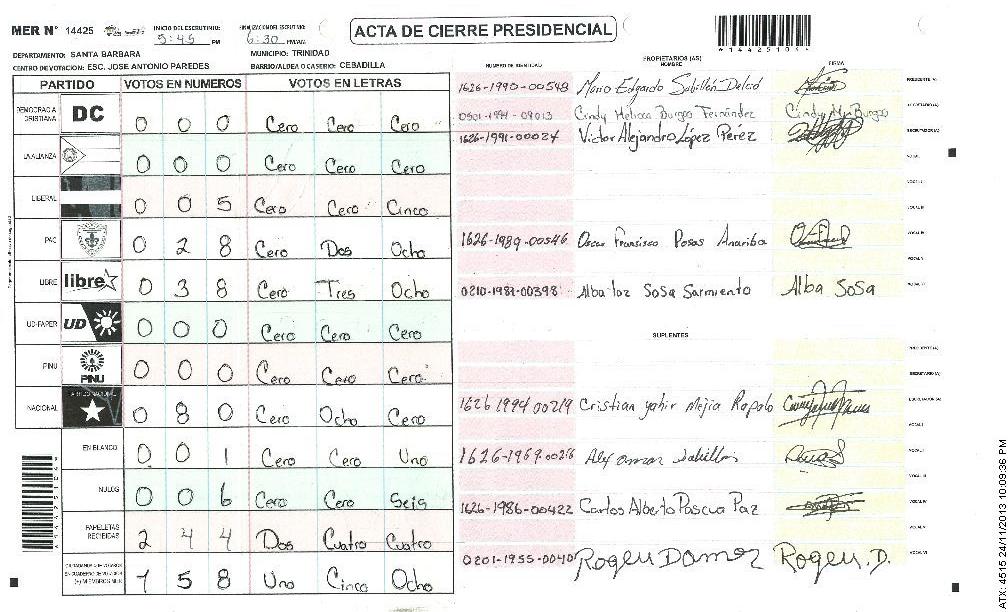 MER N° 14425
INICIO DEL ESCRUTINIO: 5:45 PM
FINALIZACION DEL ESCRUTINIO: 6:30 PM/AM
ACTA DE CIERRE PRESIDENCIAL
DEPARTAMENTO: SANTA BARBARA
MUNICIPIO: TRINIDAD
CENTRO DE VOTACION: ESC. JOSE ANTONIO PAREDES
BARRIO/ALDEA O CASERIO: CEBADILLA
PARTIDO VOTOS EN NUMEROS VOTOS EN LETRAS
DEMOCRACIA CRISTIANA DC 0 0 0 Cero Cero Cero
LA ALIANZA 0 0 0 Cero Cero Cero
LIBERAL 0 0 5 Cero Cero Cinco
PAC 0 2 8 Cero Dos Ocho
LIBRE libre 0 3 8 Cero Tres Ocho
UD-FAPER UD 0 0 0 Cero Cero Cero
PINU PINU 0 0 0 Cero Cero Cero
NACIONAL PARTIDO NACIONAL 0 8 0 Cero Ocho Cero
EN BLANCO 0 0 1 Cero Cero Uno
NULOS 0 0 6 Cero Cero Seis
PAPELETAS RECIBIDAS 2 4 4 Dos Cuatro Cuatro
1 5 8 Uno Cinco Ocho
NUMERO DE IDENTIDAD
PROPIETARIOS (AS)
NOMBRE
FIRMA
1626-1990-00548 Mario Edgardo Sabillón PRESIDENTE (A)
0501-1991-09013 Cindy Melissa Burgos Fernández Cindy Burgos SECRETARIO (A)
1626-1991-00024 Victor Alejandro López Perez ESCRUTADOR (A)
VOCAL I
VOCAL II
VOCAL III
1626-1989-00546 Oscar Fransisco Posas Anariba VOCAL IV
VOCAL V
0210-1981-00398 Alba luz Sosa Sarmiento Alba Sosa VOCAL VI
SUPLENTES
PRESIDENTE (A)
SECRETARIO (A)
1626 1994 00219 Cristian yahir Mejia Rapalo ESCRUTADOR (A)
VOCAL I
1626-1969-00216 Alex omar Sabillon VOCAL II
VOCAL III
1626-1986-00422 Carlos Alberto Pascua Paz VOCAL IV
VOCAL V
0201-1955-0040 Roger Damos Roger. D. VOCAL VI
ATX: 4515 24/11/2013 10:09:36 PM